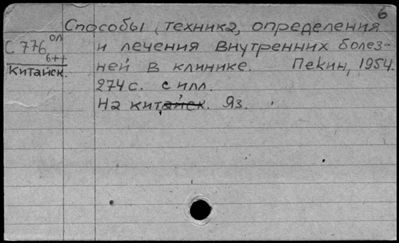 6
Способы, техника, определения
С 776 ол и лечения внутренних болез-
6++ ней в клинике. Пекин, 1954.
Китайск.
274 с. с илл.
На китайск. Яз.